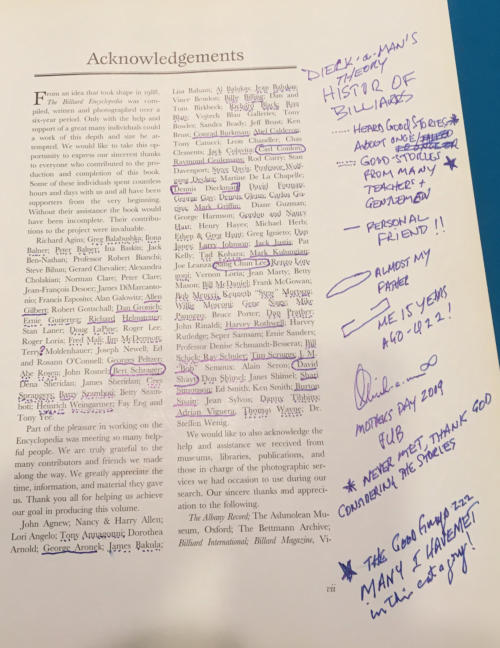 Acknowledgements
From an idea that took shape in 1988,
The Billiard Encyclopedia was com-
piled, written and photographed over a
six-year period. Only with the help and
support of a great many individuals could
a work of this depth and size be at-
tempted. We would like to take this op-
portunity to express our sincerest thanks
to everyone who contributed to the pro-
duction and completion of this book.
Some of these individuals spent countless
hours and days with us and all have been
supporters from the very beginning.
Without their assistance the book would
have been incomplete. Their contribu-
tions to the project were invaluable.
Richard Agins; Greg Balabushka; Ilona
Balner; Peter Balner; Ina Baskin; Jack
Ben-Nathan; Professor Robert Bianchi;
Steve Bihun; Gerard Chevalier; Alexandra
Cholakian; Norman Clare; Peter Clare;
Jean-François Desoer; James DiMarcanto-
nio; Francis Esposito; Alan Galowitz; Allen
Gilbert; Robert Gottschall; Dan Gronch;
Ernie Gutierrez; Richard Helmstetter;
Stan Laner; Doug LaPine; Roger Lee;
Roger Loria; Fred Mali; Jim McDermott;
Terry Moldenhauer; Joseph Newell; Ed
and Rosann O'Connell; Georges Peltzer;
Abe Rosen; John Rosnel; Bert Schrager;
Dena Sheridan; James Sheridan; Gus
Spragens; Barry Szamboti; Betty Szam-
boti; Heinrich Weingartner; Fay Eng and
Tony Foe.
Part of the pleasure in working on the
Encyclopedia was meeting so many help-
ful people. We are truly grateful to the
many contributors and friends we made
along the way. We greatly appreciate the
time, information, and material they gave
us. Thank you all for helping us achieve
our goal in producing this volume.
John Agnew; Nancy & Harry Allen;
Lori Angelo; Tony Annigonni; Dorothea
Arnold; George Aronek; James Bakula;
Lisa Baham; Al Balukas; Jean Balukas;
Vince Bendon; Billy Billing; Dan and
Tom Birkbeck; Richard Black; Ron
Blau; Vojtech Blau Galleries; Tony
Bowles; Sandra Brady; Jeff Brent; Ken
Brunt; Conrad Burkman; Abel Calderon;
Tony Catucci; Leon Chandler; Chas
Clements; Jack Colavita; Carl Conlon;
Raymond Ceulemans; Rod Curry; Stan
Davenport; Steve Davis; Professor Wolf-
gang Decker; Martine De La Chapelle;
Dennis Dieckman; David Forman;
George Gay; Dennis Glenn; Carlos Go-
; Mark Griffin; Diane Guzman;
George Harmson; Gordon and Nancy
Hart; Henry Hayes; Michael Herb;
Edwin & Greg Hunt; Greg Ignieto; Dan
Janes; Larry Johnson; Jack Justis; Pat
Kelly; Tad Kohara; Mark Kulungian;
Joe Leanza; Sang Chun Lee; Renzo Lon-
; Vernon Loria; Jean Marty; Betty
Mason; Bill McDaniel; Frank McGowan;
Bob Meucci; Kenneth "Stew" Morgan;
Willie Mosconi; Gene Nagy; Mike
; Bruce Porter; Dan Prather;
John Rinaldi; Harvey Rothwell; Harvey
Rutledge; Seper Samsam; Ernie Sanders;
Professor Denise Schmandt-Besserat; Bill
Schick; Ray Schuler; Tim Scruggs; J. M.
"Bob" Semeux; Alain Seron; David
Shavy; Don Shimel; Janet Shimel; Stan
Simonson; Ed Smith; Ken Smith; Burton
Spain; Jean Sylvos; Danny Tibbitts;
Adrian Viguera; Thomas Wayne; Dr.
Steffen Wenig.
We would like to also acknowledge the
help and assistance we received from
museums, libraries, publications, and
those in charge of the photographic ser-
vices we had occasion to use during our
search. Our sincere thanks and appreci-
ation to the following.
The Albany Record; The Ashmolean Mu-
seum, Oxford; The Bettmann Archive;
Billiard International; Billiard Magazine, Vi-
vii
"DIECK-a-MAN'S
THEORY
HISTOR OF
BILLIARDS
HEARD GOOD STORIES
ABOUT ONCE/
GOOD STORIES
FROM MANY
TEACHERS +
GENTLEMEN
PERSONAL
FRIEND!!
ALMOST MY
FATHER
ME 15 YEARS
AGO - @22!
MOTHERS DAY 2009
HUB
NEVER MET, THANK GOD
CONSIDERING THE STORIES
THE GOOD
MANY I HAVE MET
in this category!